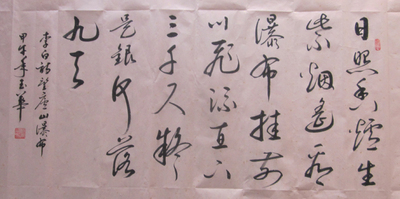 日照香爐生
紫烟遙看
瀑布挂前
川飛流直下
三千尺疑
是銀河落
九天
李白詩望廬山瀑布
甲午年玉華